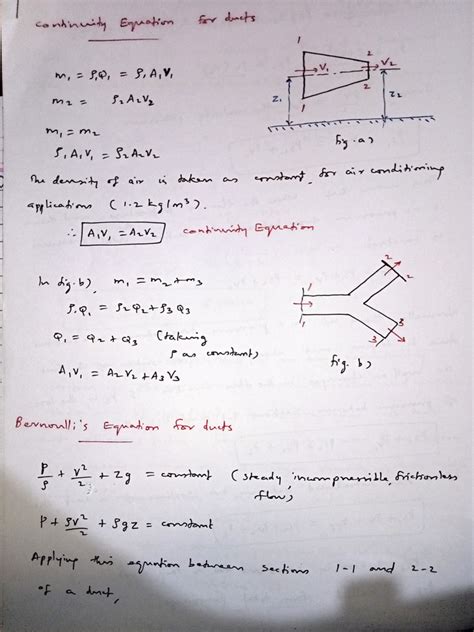 Continuity Equation for ducts
m₁ = ρ₁Q₁ = ρ₁A₁V₁
m₂ = ρ₂A₂V₂
m₁ = m₂
ρ₁A₁V₁ = ρ₂A₂V₂
1
2
V₁
V₂
1
2
Z₁
Z₂
fig. a)
The density of air is taken as constant, for air conditioning
applications (1.2 kg/m³).
∴ A₁V₁ = A₂V₂ continuity Equation
In fig. b), m₁ = m₂ + m₃
ρ₁Q₁ = ρ₂Q₂ + ρ₃Q₃
Q₁ = Q₂ + Q₃ (taking
ρ as constant)
A₁V₁ = A₂V₂ + A₃V₃
1
1
2
2
3
3
fig. b)
Bernoulli's Equation for ducts
P/ρ + V²/2 + Zg = constant (steady, incompressible, frictionless
flow)
P + ρV²/2 + ρgz = constant
Applying this equation between sections 1-1 and 2-2
of a duct,